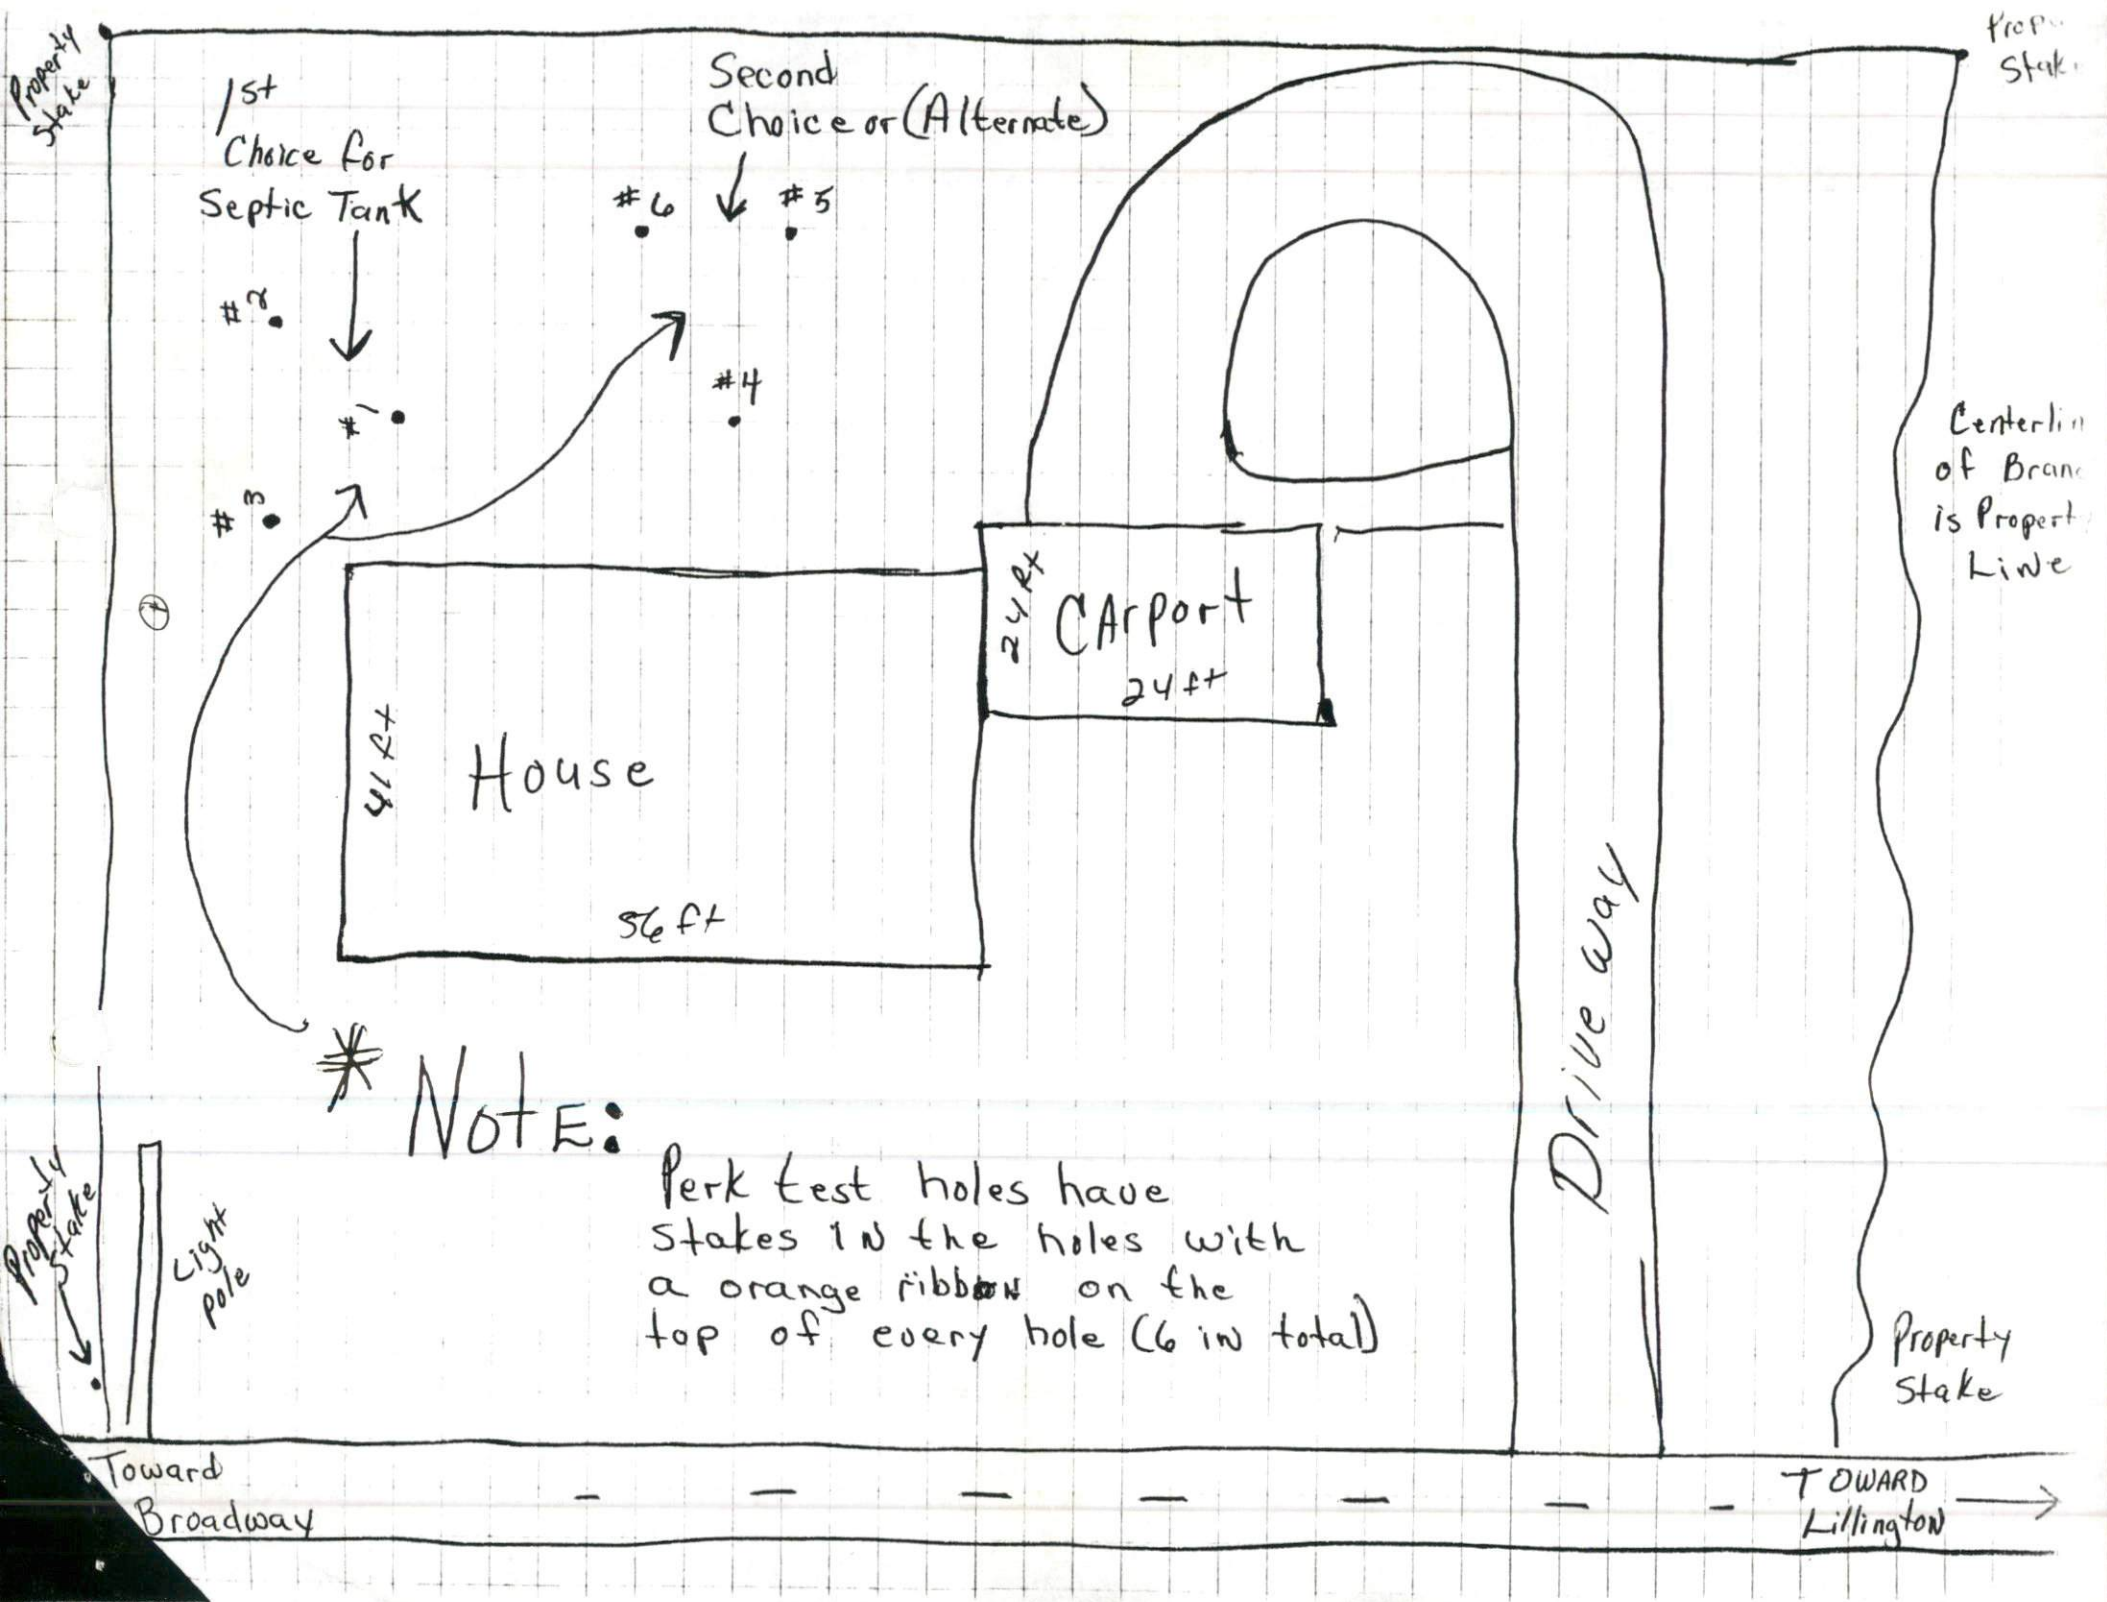 Property
Stake
1st
Choice for
Septic Tank
Second
Choice or (Alternate)
#6
#5
#2
#1
#4
#3
Stak
Centerlin
of Bran
is Propert
Line
24 ft
CArport
24 ft
41 ft
House
56 ft
Drive way
* NotE:
Perk test holes have
stakes in the holes with
a orange ribbon on the
top of every hole (6 in total)
Property
Stake
Light
pole
Property
Stake
Toward
Broadway
TOWARD
Lillington